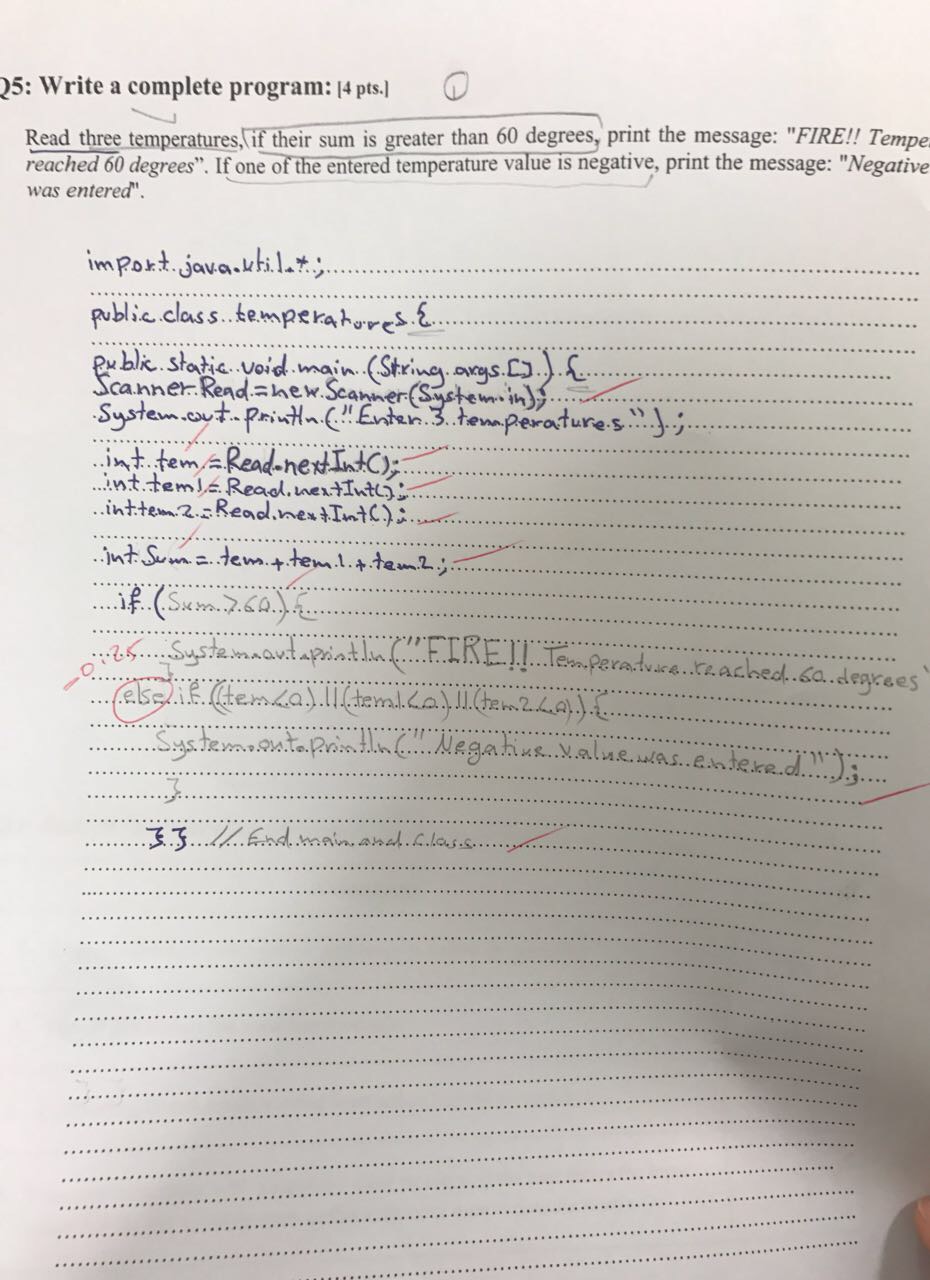 Q5: Write a complete program: [4 pts.] 1
Read three temperatures, if their sum is greater than 60 degrees, print the message: "FIRE!! Tempe
reached 60 degrees". If one of the entered temperature value is negative, print the message: "Negative
was entered".
import java.util.*;
public class temperatures {
public static void main (String args []) {
Scanner Read = new Scanner(System.in);
System.out.println ("Enter 3 temperatures");
int tem = Read.nextInt();
int tem1 = Read.nextInt();
int tem2 = Read.nextInt();
int Sum = tem + tem1 + tem2;
if (Sum > 60) {
System.out.println ("FIRE!! Temperature reached 60 degrees"
-0.25 }
else if ((tem<0) || (tem1<0) || (tem2<0)) {
System.out.println ("Negative value was entered");
}
}} // End main and class